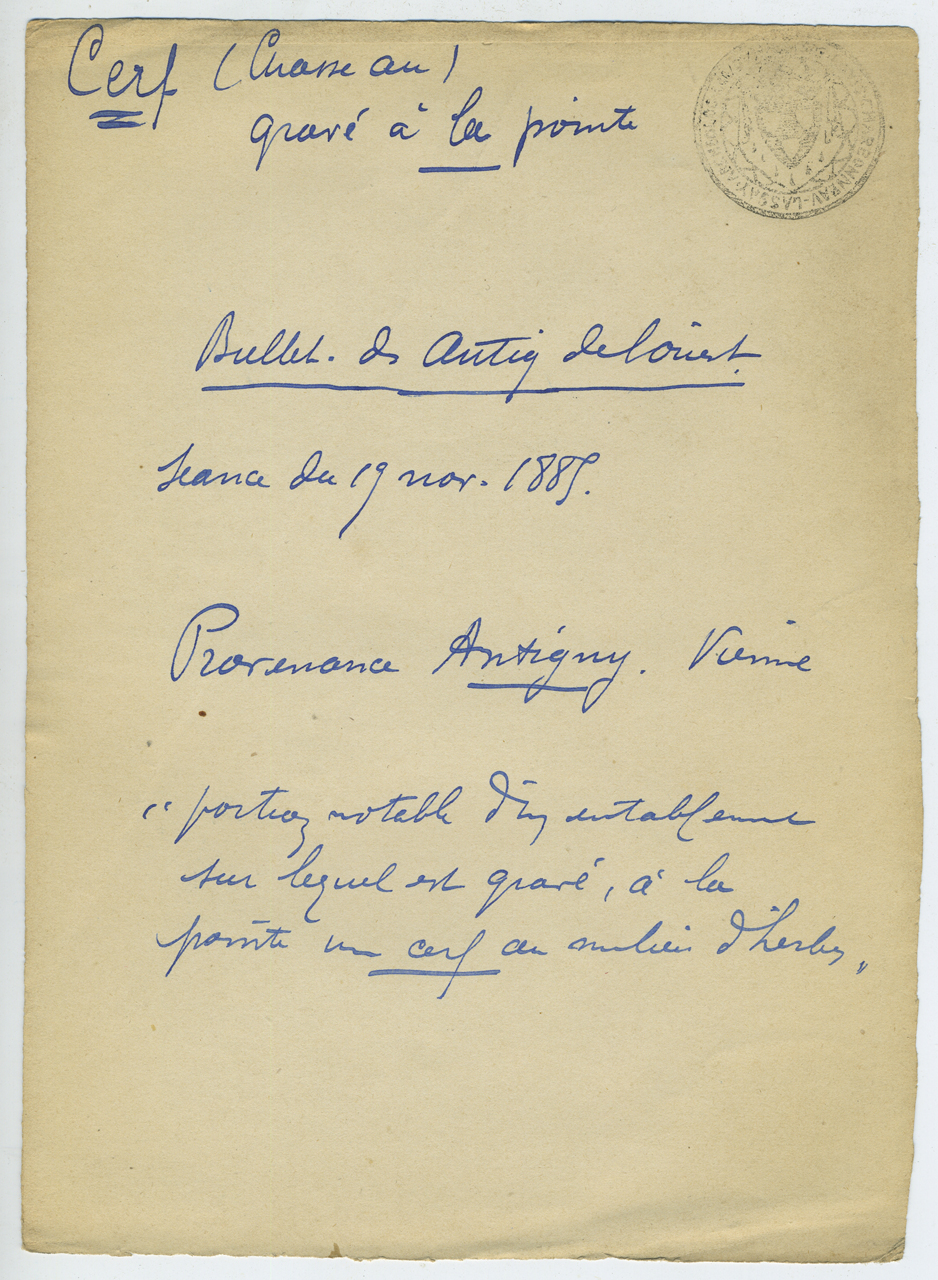 Cerf (Chasse au)
gravé à la pointe
CHARBONNEAU-LASSAY
Bullet. ds Antiq de l'Ouest.
Séance du 19 nov. 1885.
Provenance Antigny. Vienne
" portion notable d'un entablement
sur lequel est gravé, à la
pointe un cerf au milieu d'herbes "